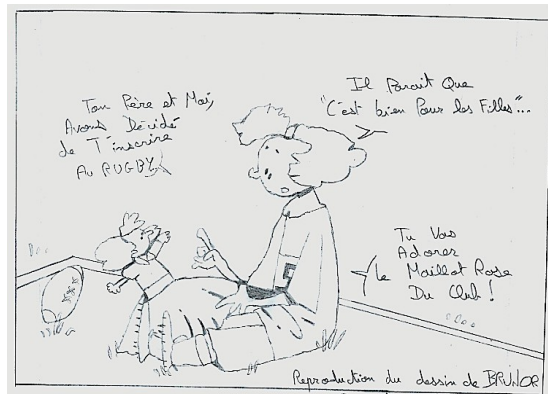 Ton Père et Moi,
Avons Décidé
de T'inscrire
Au RUGBY
Il Parait Que
"C'est bien Pour les Filles"...
Tu Vas
Adorer
Le Maillot Rose
Du Club !
Reproduction du dessin de BRUNOR